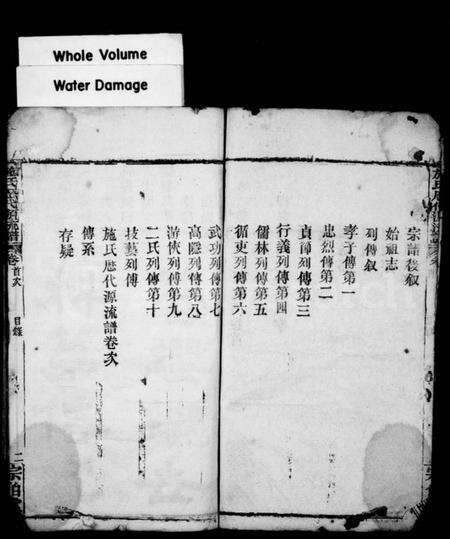 Whole Volume
Water Damage
宗譜後叙
始祖志
列傳叙
孝子傳第一
忠烈傳第二
貞節列傳第三
行義列傳第四
儒林列傳第五
循吏列傳第六
武功列傳第七
高隱列傳第八
游俠列傳第九
二氏列傳第十
技藝列傳
施氏歷代源流譜卷次
傳系
存疑
目錄
二